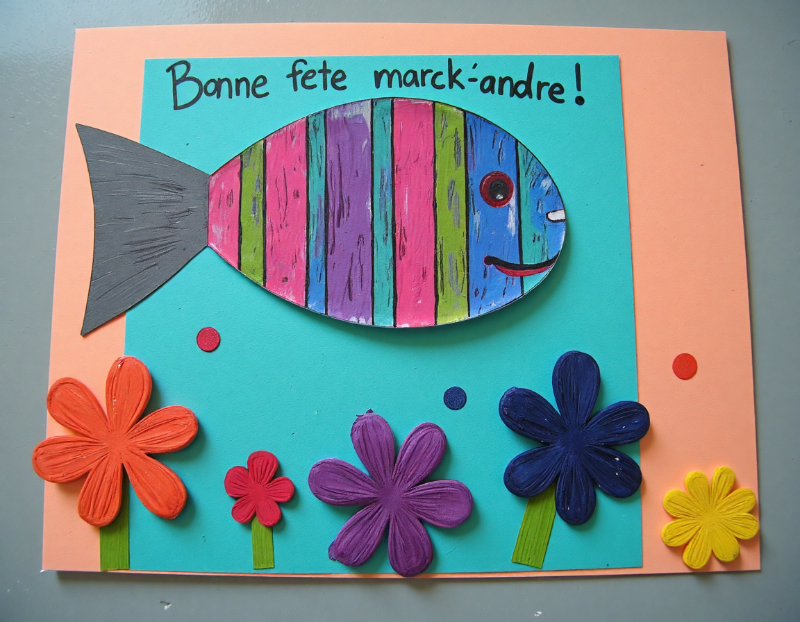 Bonne fete marck-andre!